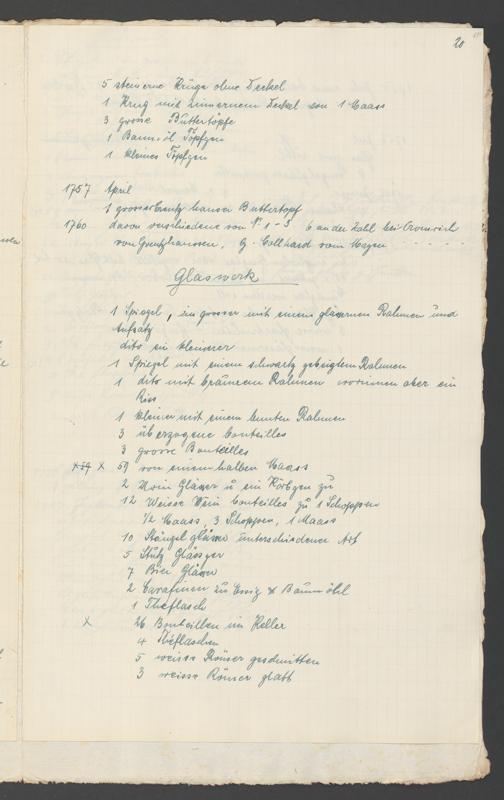 20
5 steinerne Krüge ohne Deckel
1 Krug mit zinnernem Deckel von 1 Maass
3 grosse Buttertöpfe
1 Baumöl Töpfgen
1 kleines Töpfgen
1757 April
1 grosser hauser Buttertopf
1760 davon verschiedene von N° 1 - 5 6 an der Zahl bei
von Guntzhaussen, G. Collhard vom Hagen
Glaswerk
1 Spiegel, ein grosser mit einem gläsernen Rahmen und
Aufsatz
dito ein kleinerer
1 Spiegel mit einem schwartz gebeigten Rahmen
1 dito mit braunem Rahmen worinnen aber ein
Riss
1 kleiner mit einem bunten Rahmen
3 überzogene bouteilles
3 grosse Bouteilles
x 59 x 59 von einem halben Maass
2 Gläser u ein Körbgen zu
12 Weisse Wein bouteilles zu 1 Schoppen
1/2 Maass, 3 Schoppen, 1 Maass
10 Stängel gläser unterschiedener Art
5 Stutz Glässger
7 Bier Gläser
2 Carafinen zu Essig & Baumöhl
1 Theflasch
x 26 Bouteillen im Keller
4 Theflaschen
5 weisse Römer geschnitten
3 weisse Römer glatt